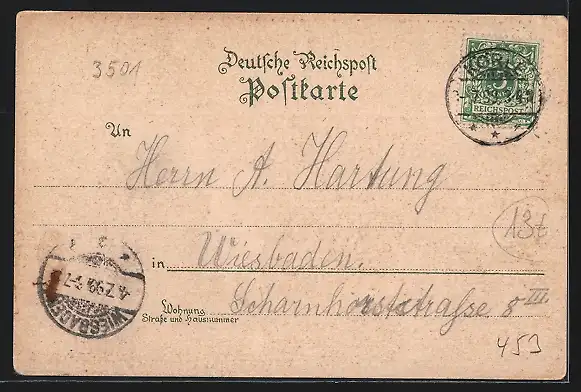 3501
Deutsche Reichspost
Postkarte
REICHSPOST
An
Herrn A. Hartung
13€
in Wiesbaden.
4.7.99. 5-7
WIESBADEN
Wohnung
Straße und Hausnummer
Scharnhorststraße 8 III.
453